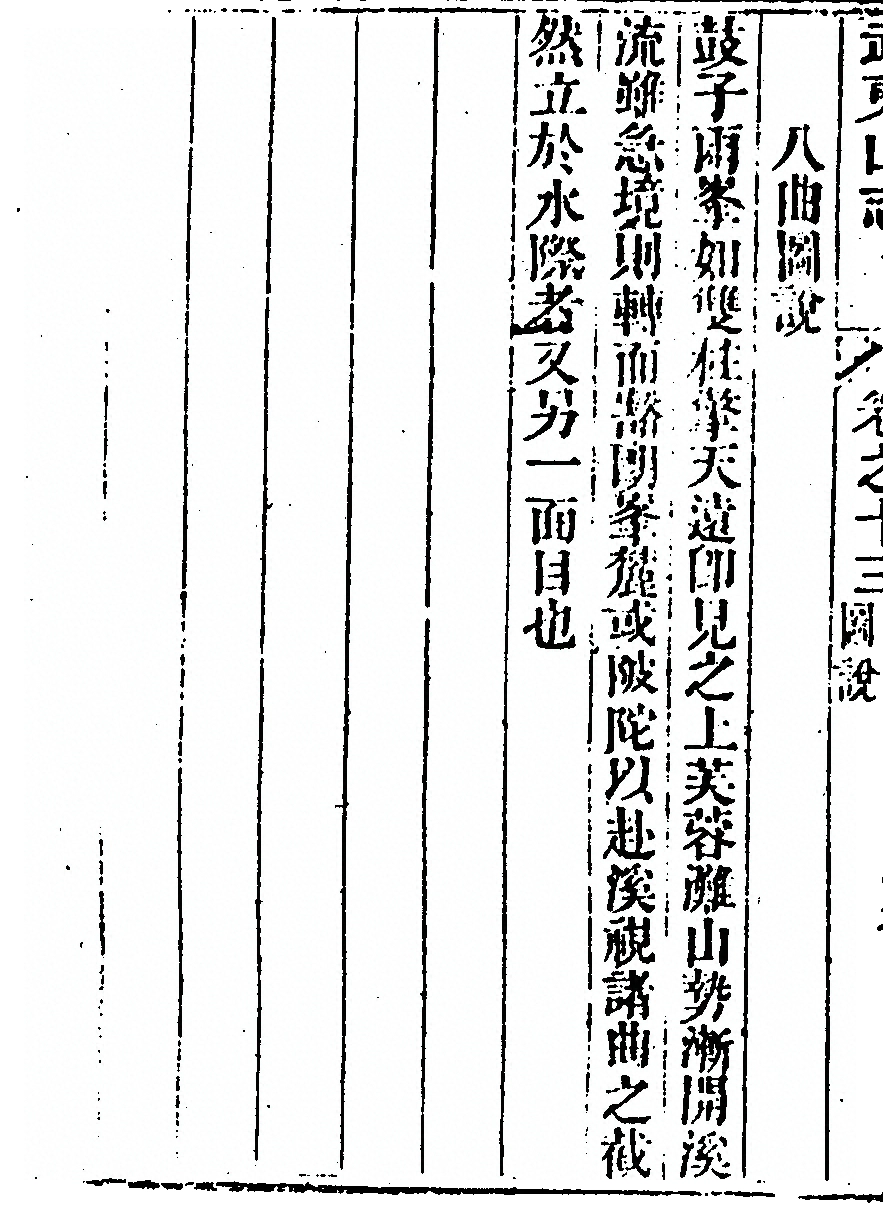 武夷山志 卷之十三 圖說
八曲圖說
鼓子兩峯如雙柱擎天遠卽見之上芙蓉灘山勢漸開溪
流雖急境則轉而豁閉峯麓或陂陀以赴溪視諸曲之截
然立於水際者又另一面目也